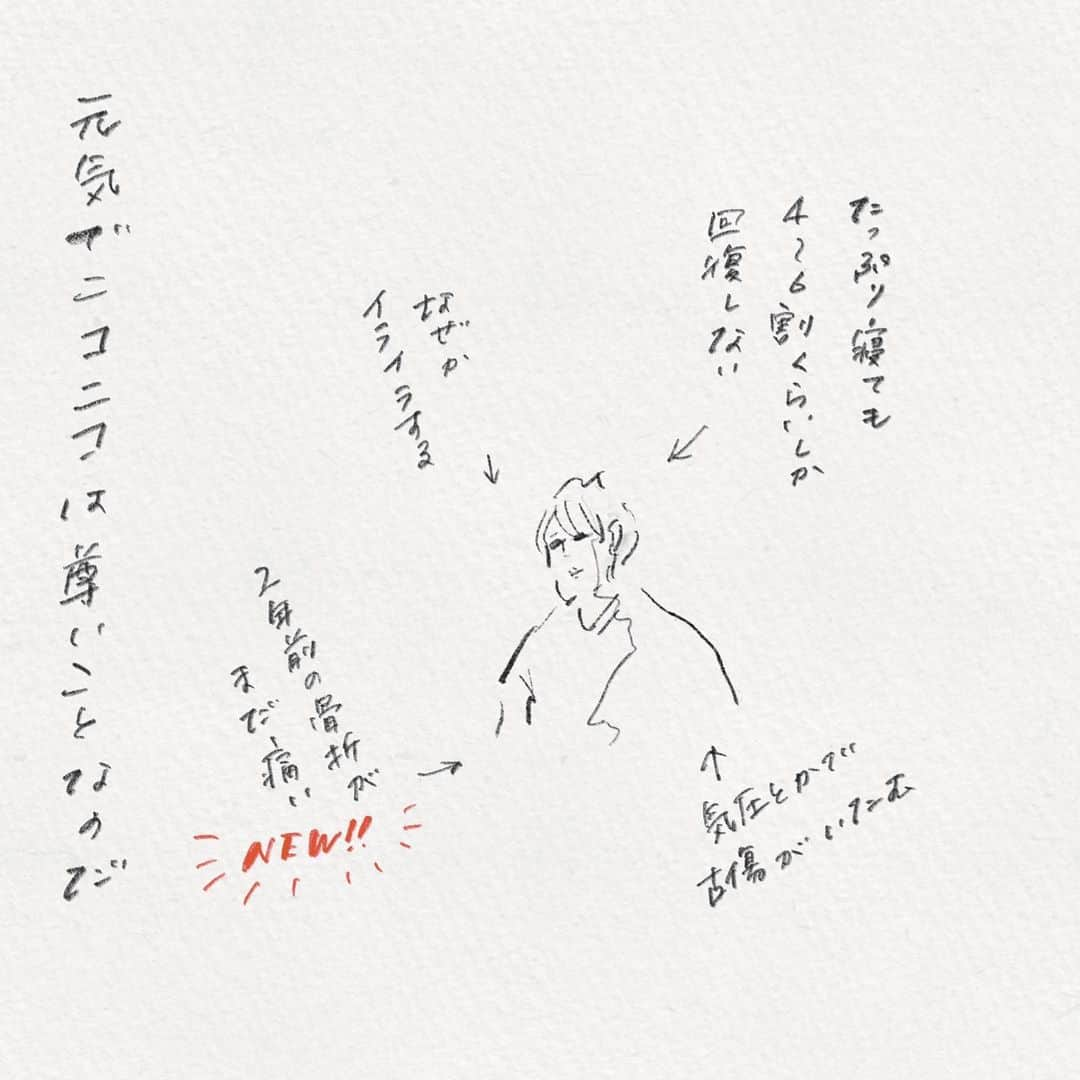 たっぷり寝ても
4〜6割くらいしか
回復しない
なぜか
イライラする
2年前の骨折が
まだ痛い
NEW!!
気圧とかで
古傷がいたむ
元気でニコニコは尊いことなのだ